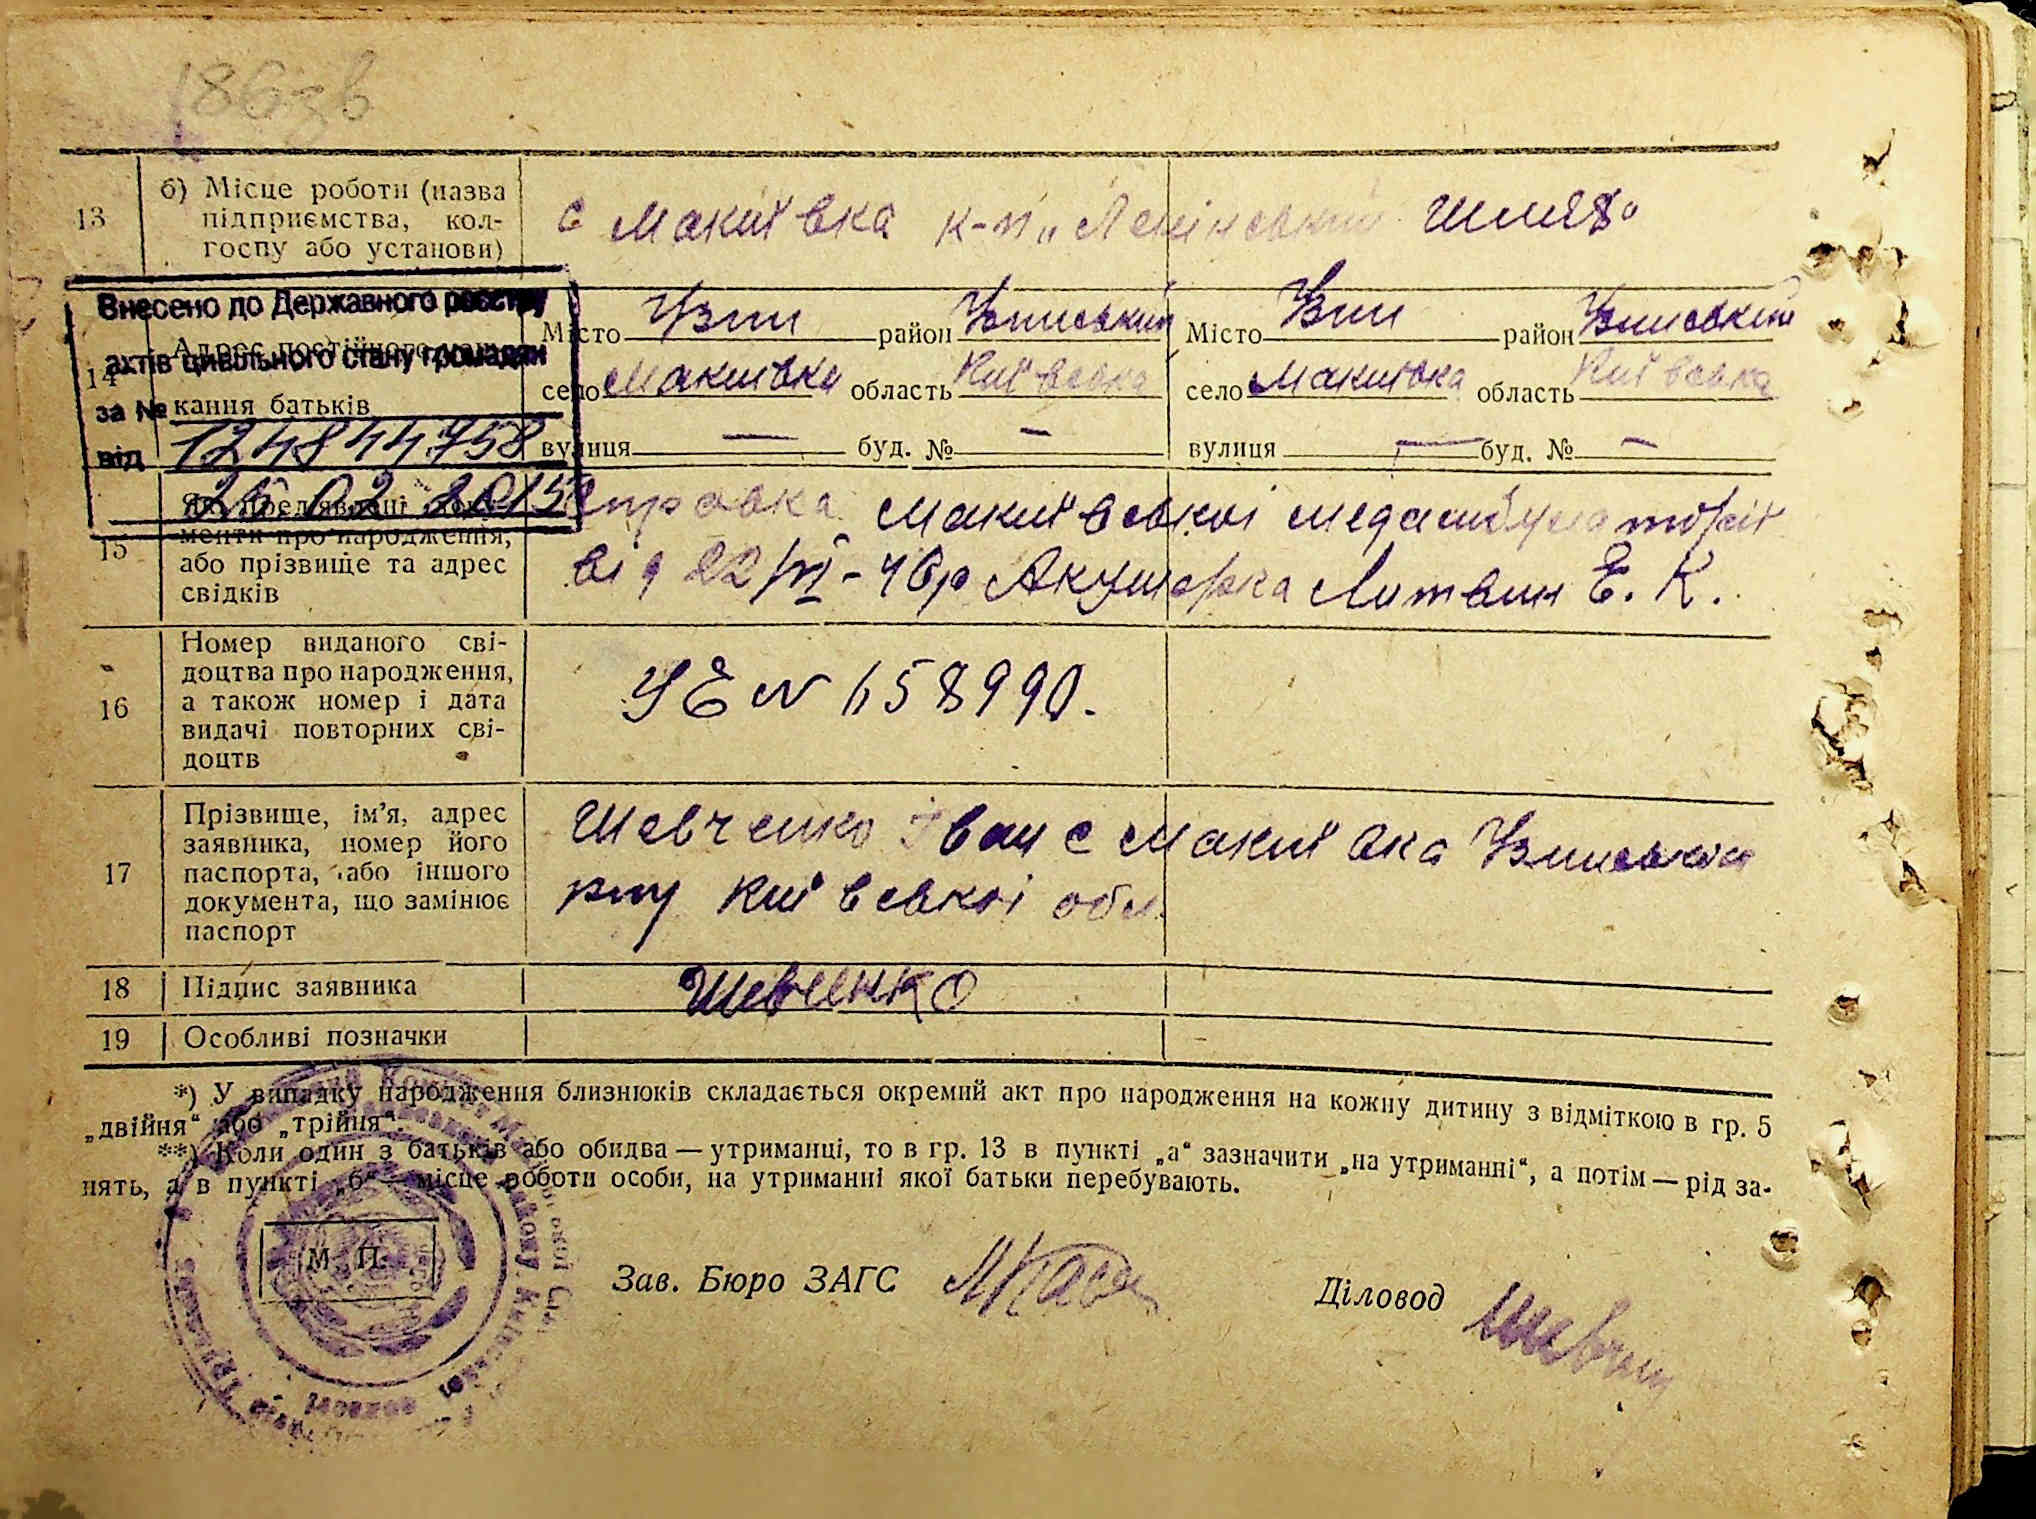 186зв
13 б) Місце роботи (назва підприємства, колгоспу або установи)
с Макиївка к-п „Ленінський Шлях"
Внесено до Державного реєстру
актів цивільного стану громадян
за №
від 124844758
26 02 2015
14 Адрес постійного
кання батьків
Місто Узин район Узинський Місто Узин район Узинський
село Макиївка область Київська село Макиївка область Київська
вулиця — буд. № — вулиця — буд. № —
15 Які пред'явлені документи про народження,
або прізвище та адрес
свідків
Справка Макиївської медамбулаторії
від 22/VI-46р Акушерка Литвин Е. К.
16 Номер виданого сві-
доцтва про народження,
а також номер і дата
видачі повторних сві-
доцтв
УЕ N 658990.
17 Прізвище, ім'я, адрес
заявника, номер його
паспорта, або іншого
документа, що замінює
паспорт
Шевченко Іван с Макиївка Узинського
р-ну Київської обл.
18 Підпис заявника Шевченко
19 Особливі позначки
*) У випадку народження близнюків складається окремий акт про народження на кожну дитину з відміткою в гр. 5
„двійня" або „трійня".
**) Коли один з батьків або обидва — утриманці, то в гр. 13 в пункті „а" зазначити „на утриманні", а потім — рід за-
нять, а в пункті „б" — місце роботи особи, на утриманні якої батьки перебувають.
М. П.
Зав. Бюро ЗАГС Діловод